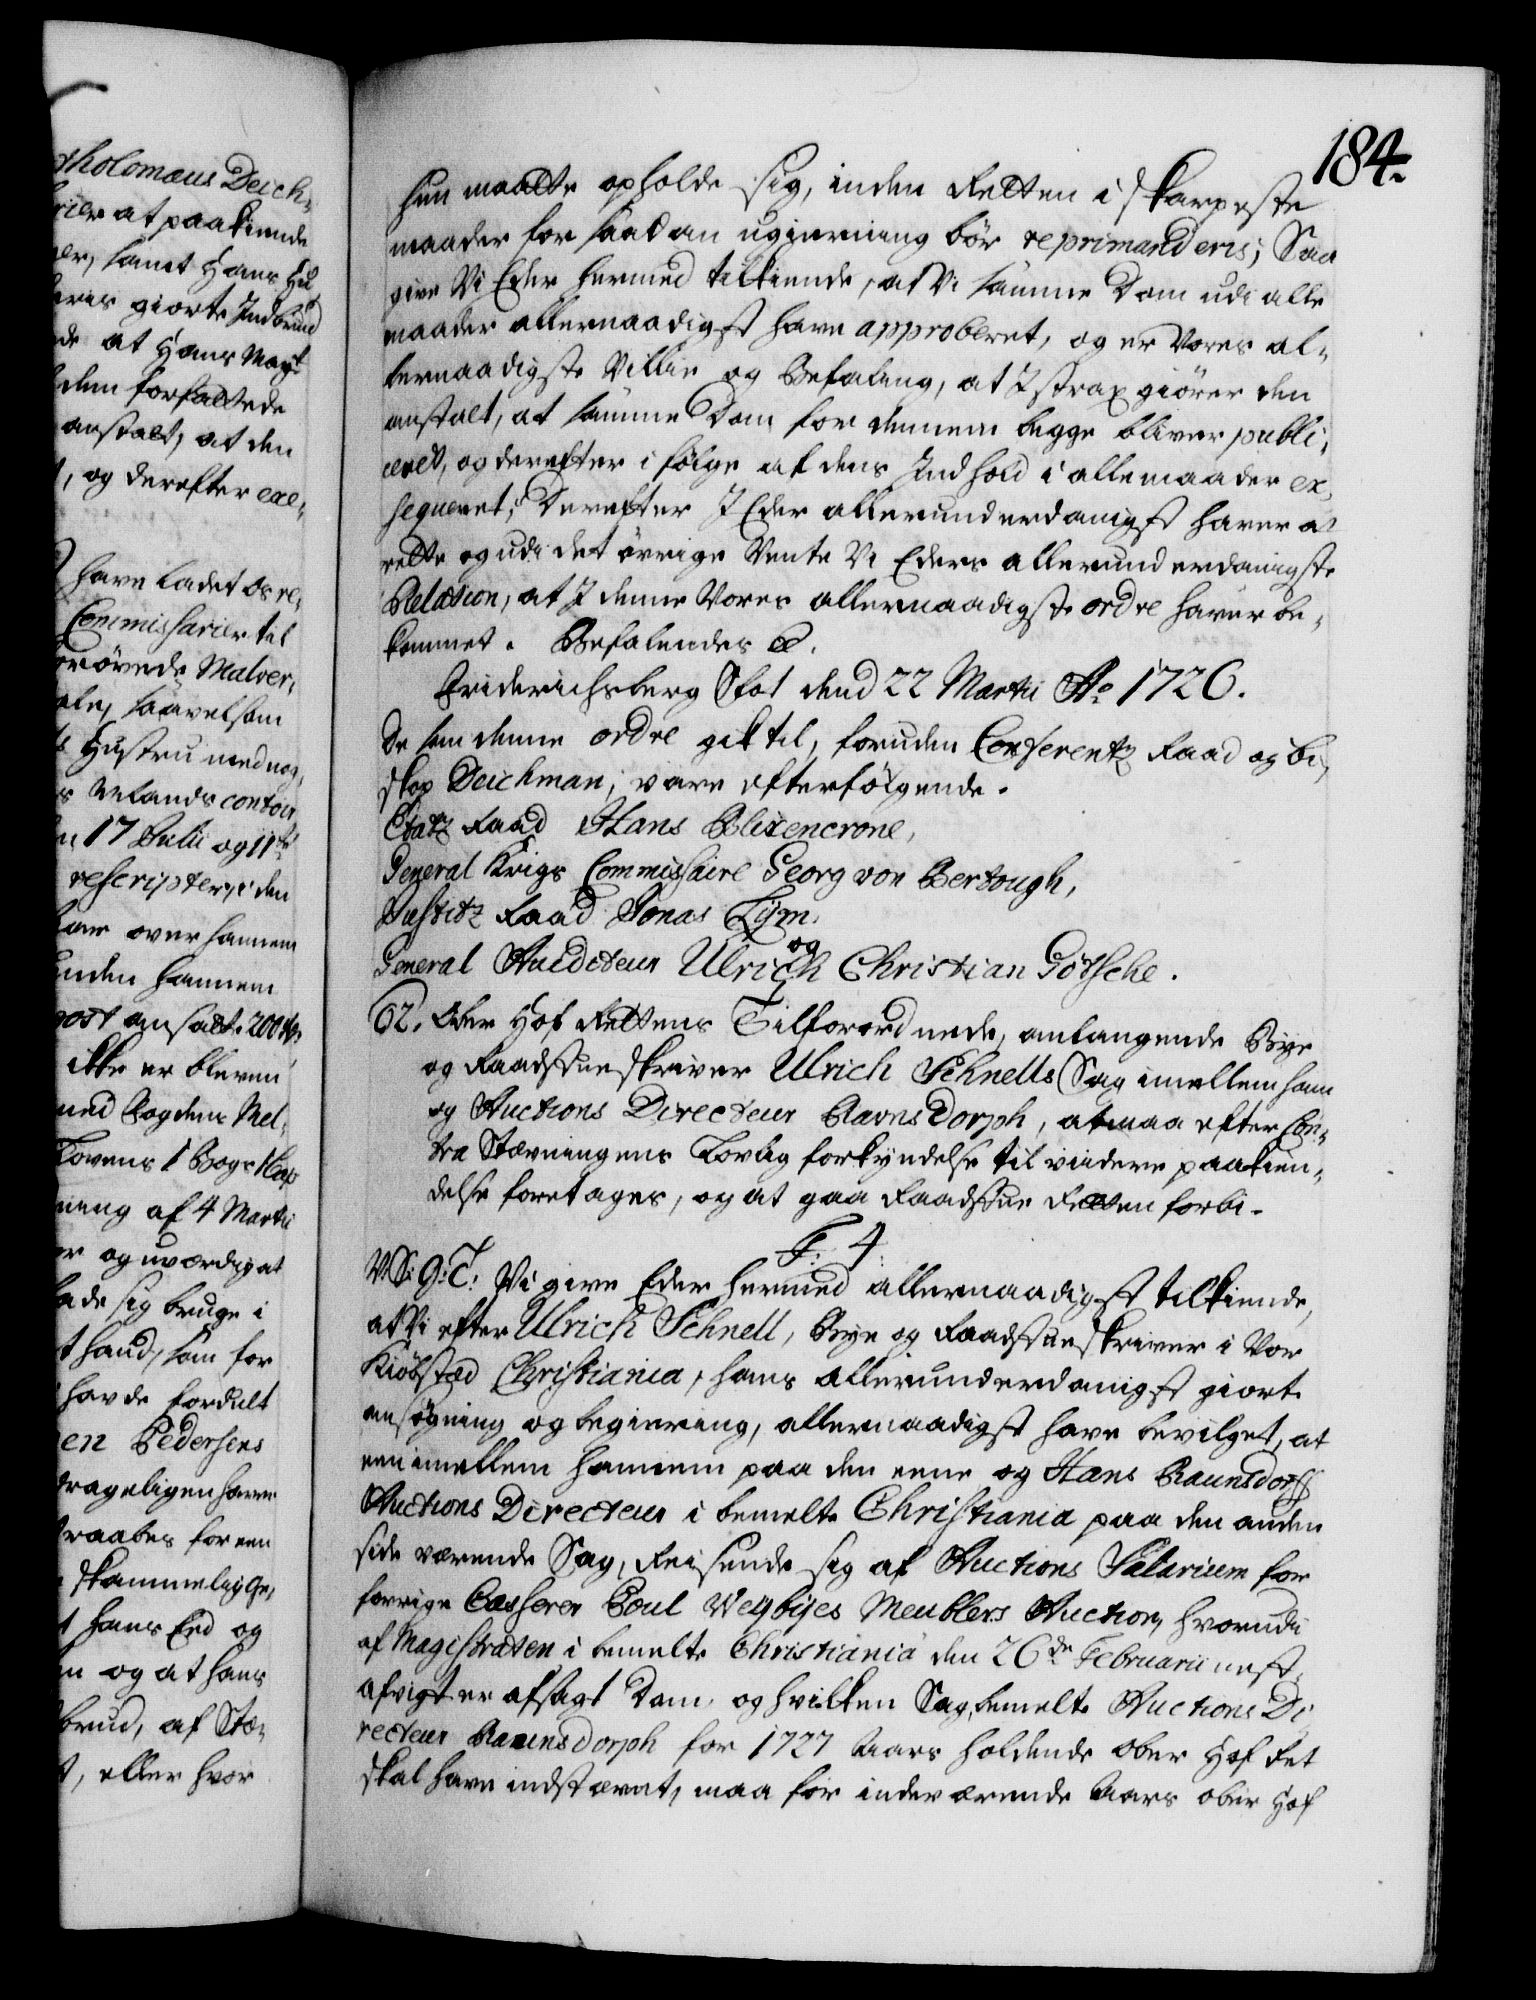 184.
tholomæus Deich-
rier at paakiende
er, samt Hans Hil
heris giorte Indbrud
de at Hans Mayt
dem forfattede
anstalt, at den
, og derefter exe-
have ladet Os re-
Commissarier til
prøvede Malver-
ale, saavelsom
s Hustru med nog-
s Velands contoir
17 Julii og 11te
rescripter, i den
Dom over hannem
unden hannem
post ansatte 200 rdr
ikke er bleven
med Fogden Mel-
Lovens 1 Bogs 1 Cap
ning af 4 Martii
er og uværdig at
lade sig bruge i
t haud, som for
havde fordult
en Pedersens
drageligen haver
raabes for een
skammelig Ge-
t hans Eed og
n og at hans
brud, af Stæ-
t, eller hvor
hun maatte opholde sig, inden Retten i skarpeste
maader for saadan ugierning bør reprimanderis; Saa
give Vi Eder hermed tilkiende, at Vi samme Dom udi alle
maader allernaadigst have approberet, og er Vores al-
lernaadigste Villie og Befaling, at I strax giører den
anstalt, at samme Dom for dennem begge bliver publi-
ceret, og derefter i følge af dens Indhold i alle maader ex-
seqveret; Derefter I Eder allerunderdanigst haver at
rette og udi det øvrige Vente Vi Eders allerunderdanigste
Relation, at I denne Vores allernaadigste ordre haver be-
kommet. Befalendes &.
Friderichsberg Slot dend 22 Martii Ao 1726.
De som denne ordre gik til, foruden Conferentz Raad og bi-
skop Deichman, vare efterfølgende.
Etatz Raad Hans Blixencrone,
General Krigs Commissaire Georg von Bertough,
Justitz Raad Jonas Lÿm,
og
General Auditeur Ulrich Christian Götsche.
62. Ober Hof Rettens Tilforordnede, anlangende Bye
og Raadstueskriver Ulrich Schnells Sag imellem ham
og Auctions Directeur Ravnsdorph, at maa efter Con-
tra Stævningens Lovlig forkyndelse til videre paakien-
delse foretages, og at gaa Raadstue Retten forbi.
F: 4
V S: G: T: Vi give Eder hermed allernaadigst tilkiende,
at Vi efter Ulrich Schnell, Bye og Raadstueskriver i Vor
Kiøbstæd Christiania, hans allerunderdanigst giorte
ansøgning og begiering, allernaadigst have bevilget, at
een imellem hannem paa den eene og Hans Raunsdorff
Auctions Directeur i bemelte Christiania paa den anden
side værende Sag, Reisende sig af Auctions Salarium for
forrige Casserer Poul Weybÿes Meublers Auction, hvorudi
af Magistraten i bemelte Christiania den 26de Februarii nest-
afvigt er afsagt Dom, og hvilken Sag, bemelte Auctions Di-
recteur Raunsdorph for 1727 Aars holdende Ober Hof Ret
skal have indstævnt, maa for indeværende Aars Ober Hof